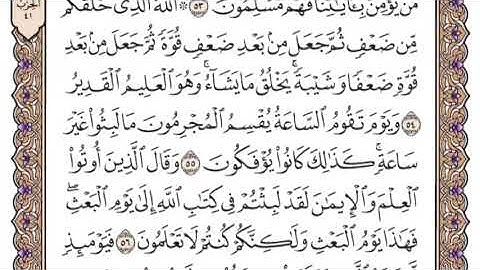 مَن يُؤْمِنُ بِـَٔايَٰتِنَا فَهُم مُّسْلِمُونَ ٥٣ ۞ ٱللَّهُ ٱلَّذِى خَلَقَكُم
مِّن ضَعْفٍ ثُمَّ جَعَلَ مِنۢ بَعْدِ ضَعْفٍ قُوَّةً ثُمَّ جَعَلَ مِنۢ بَعْدِ
قُوَّةٍ ضَعْفًا وَشَيْبَةً ۚ يَخْلُقُ مَا يَشَآءُ ۖ وَهُوَ ٱلْعَلِيمُ ٱلْقَدِيرُ
٥٤ وَيَوْمَ تَقُومُ ٱلسَّاعَةُ يُقْسِمُ ٱلْمُجْرِمُونَ مَا لَبِثُوا۟ غَيْرَ
سَاعَةٍ ۚ كَذَٰلِكَ كَانُوا۟ يُؤْفَكُونَ ٥٥ وَقَالَ ٱلَّذِينَ أُوتُوا۟
ٱلْعِلْمَ وَٱلْإِيمَٰنَ لَقَدْ لَبِثْتُمْ فِى كِتَٰبِ ٱللَّهِ إِلَىٰ يَوْمِ ٱلْبَعْثِ ۖ
فَهَٰذَا يَوْمُ ٱلْبَعْثِ وَلَٰكِنَّكُمْ كُنتُمْ لَا تَعْلَمُونَ ٥٦ فَيَوْمَئِذٍ
الحزب
٤١